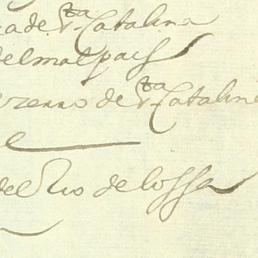 de Sta Catalina
del mal pais
de Sta Catalina
del Rio de lossa